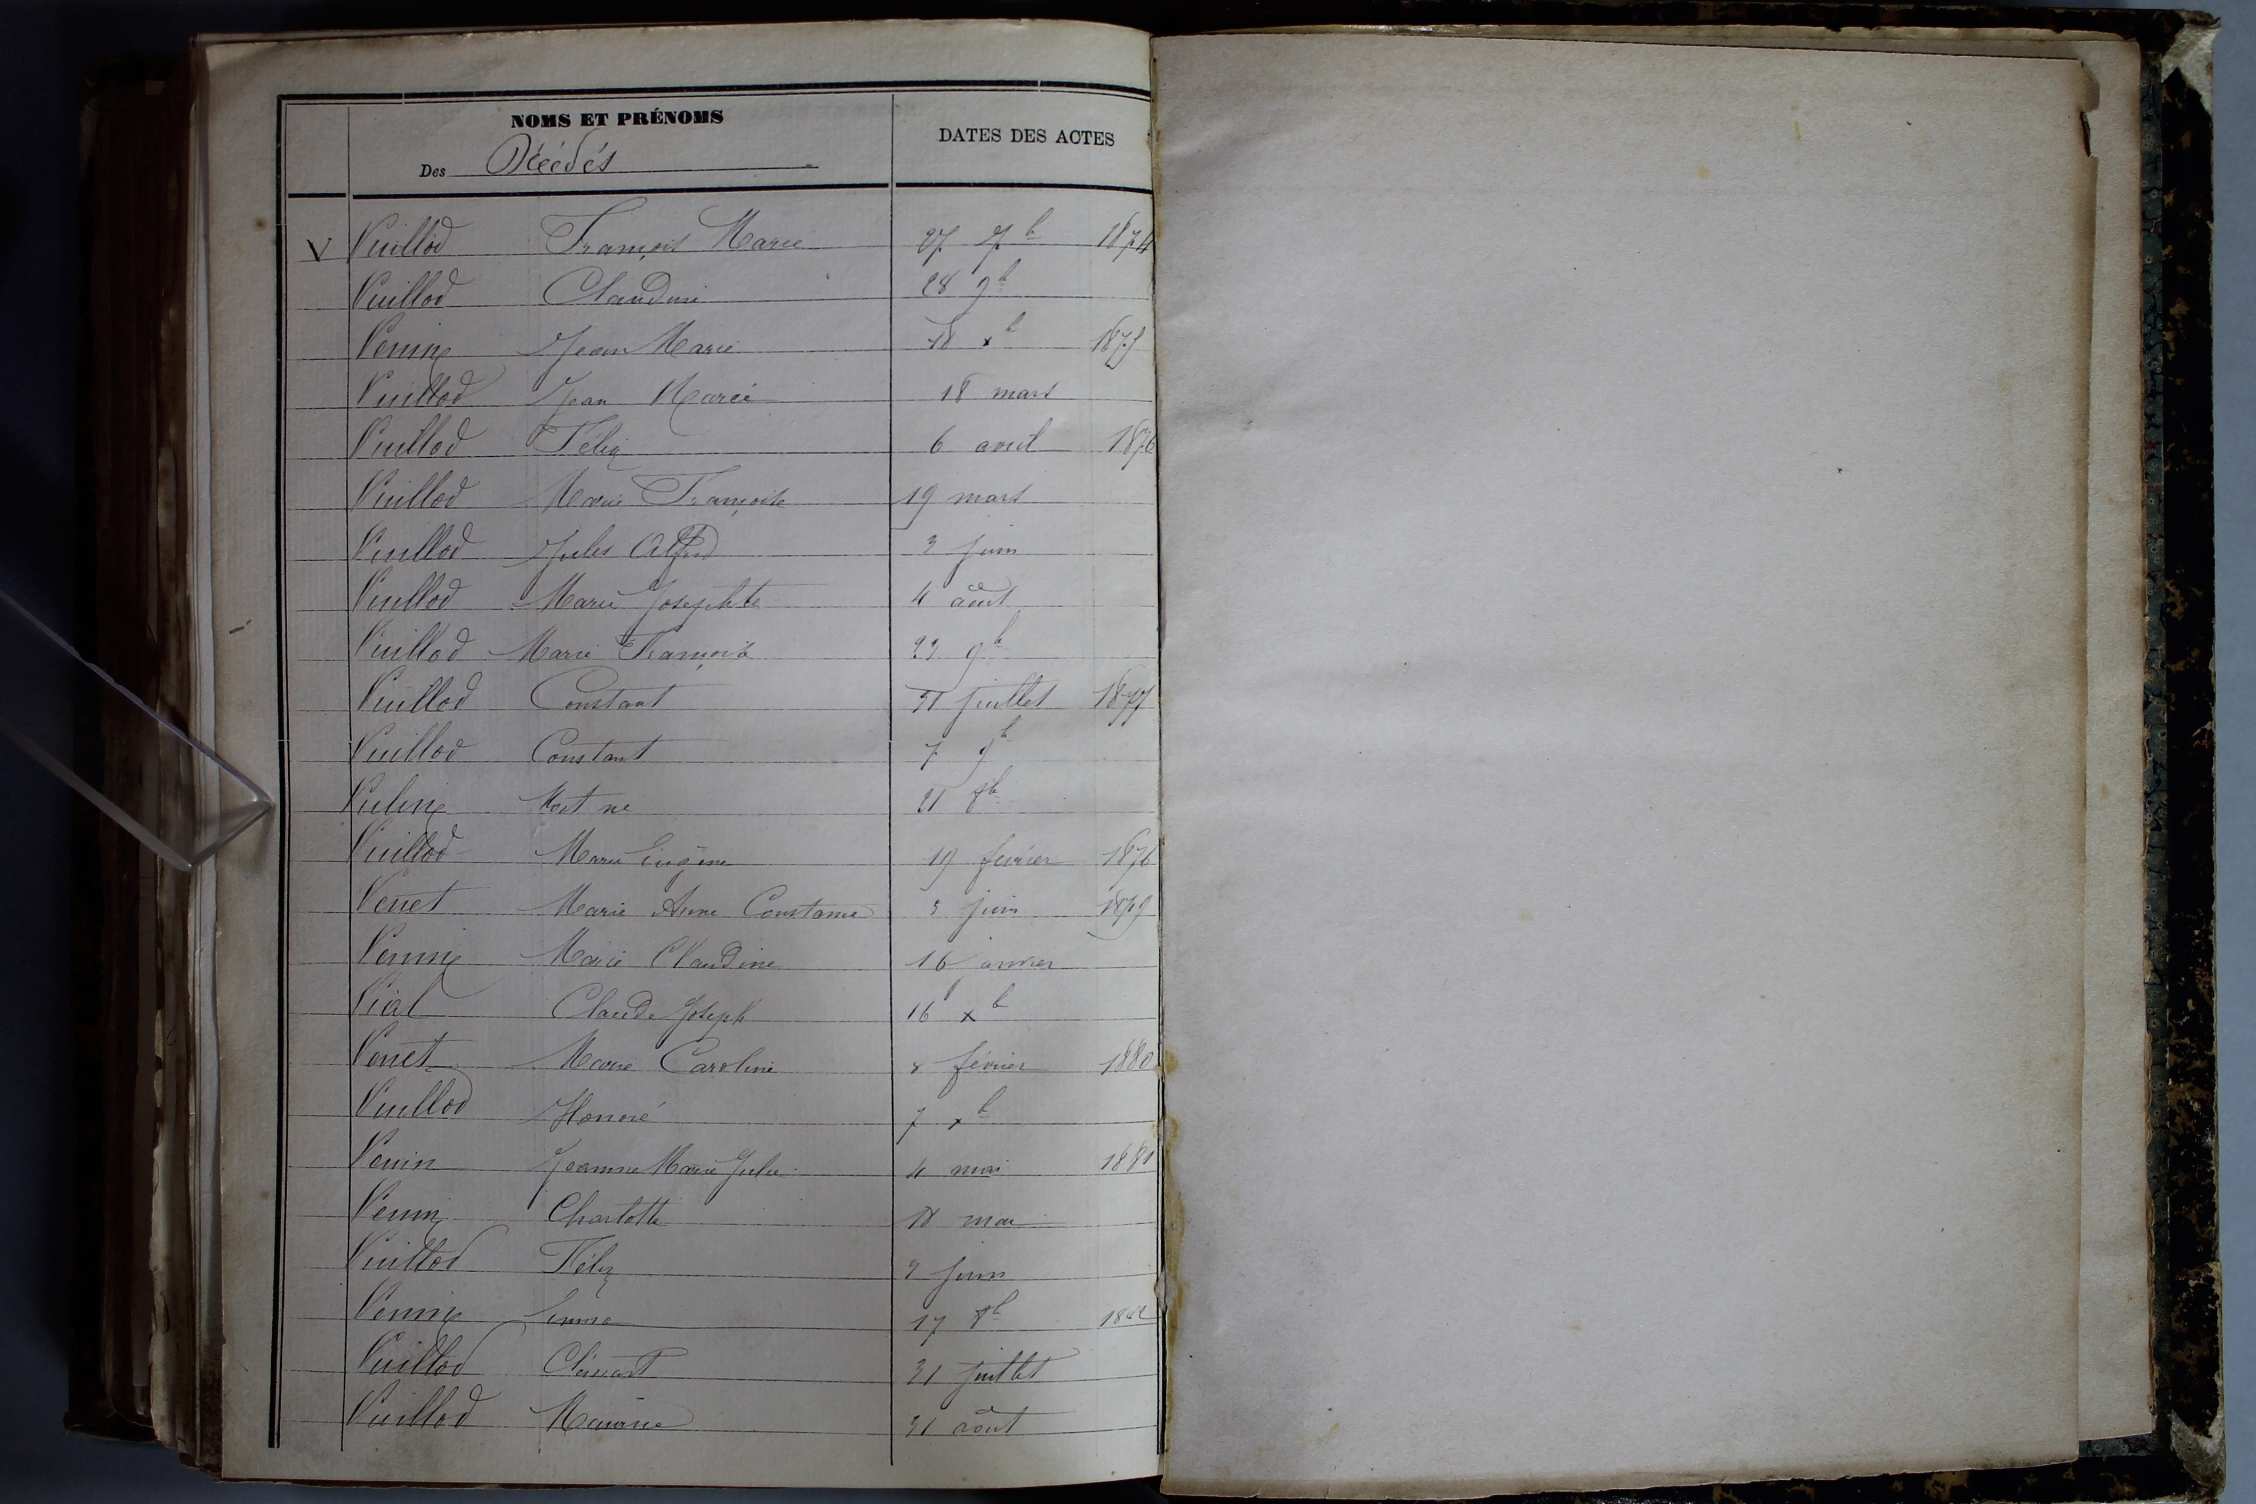 NOMS ET PRÉNOMS
Des Décédés
DATES DES ACTES
V Vuillod François Marie 27 7b 1874
Vuillod Claudine 28 9b
Vernu Jean Marie 18 xb 1875
Vuillod Jean Marie 18 mars
Vuillod Félix 6 avril 1876
Vuillod Marie Françoise 19 mars
Vuillod Jules Alfred 3 juin
Vuillod Marie Josephte 4 août
Vuillod Marie Françoise 23 9b
Vuillod Constant 31 juillet 1877
Vuillod Constant 7 9b
Mort né 21 8b
Vuillod Marie Eugène 19 février 1878
Venet Marie Anne Constance 5 juin 1879
Marie Claudine 16 janvier
Vial Claude Joseph 16 xb
Venet Marie Caroline 8 février 1880
Vuillod Honoré 7 xb
Jeanne Marie Julie 4 mai 1881
Charlotte 18 mai
Vuillod Félix 9 juin
17 8b 1882
Vuillod Clément 31 juillet
Vuillod Maurice 31 août